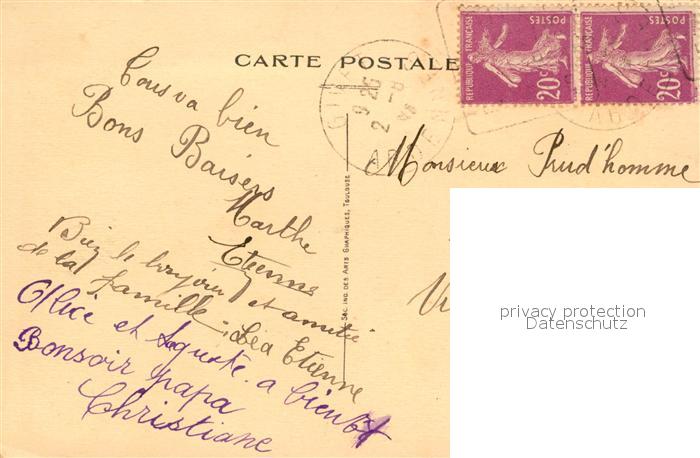 CARTE POSTALE
POSTES
REPUBLIQUE FRANÇAISE
20c
POSTES
REPUBLIQUE FRANÇAISE
20c
Tous va bien
Bons Baisers
Marthe
Etienne
Bien le bonjour et amitié
de la famille Léa Etienne
Alice et Aguste. a bientot
Bonsoir papa
Christiane
SEC. IND DES ARTS GRAPHIQUES, TOULOUSE
Monsieur Prud'homme
privacy protection
Datenschutz